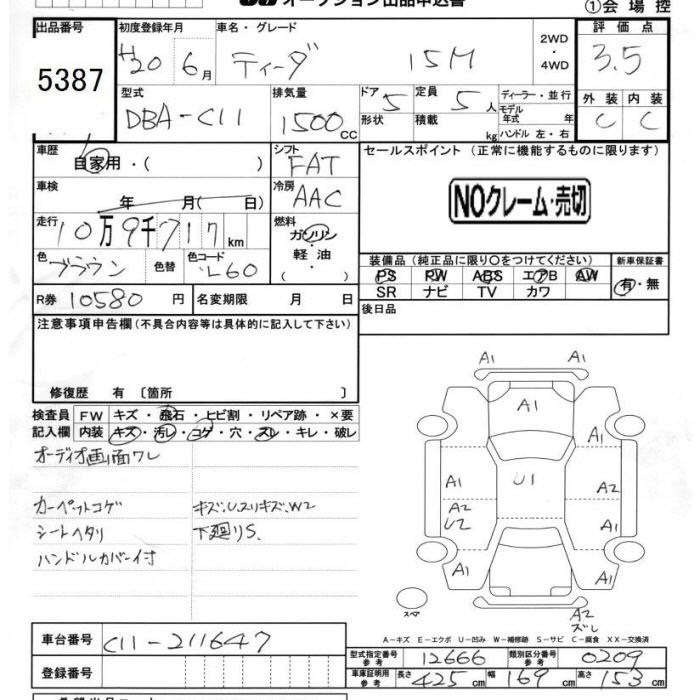 オークション出品申込書
①会場控
出品番号 5387
初度登録年月 H20 6月
車名・グレード ティーダ 15M
2WD・4WD
評価点 3.5
型式 DBA-C11
排気量 1500 CC
ドア 5 形状
定員 5 人 積載 kg
ディーラー・並行
モデル年式 年式
ハンドル 左・右
外装 C 内装 C
車歴 自家用・( )
シフト FAT
セールスポイント (正常に機能するものに限ります)
車検 年 月( 日)
冷房 AAC
NOクレーム・売切
走行 10万9千717km
燃料 ガソリン・軽油( ・ )
色 ブラウン 色替 色コード L60
装備品 (純正品に限り○をつけてください)
新車保証書
PS PW ABS エアB AW
有・無
SR ナビ TV カワ
R券 10580円 名変期限 月 日
後日品
注意事項申告欄 (不具合内容等は具体的に記入して下さい)
修復歴 有 〔箇所 〕
検査員記入欄
FW キズ・飛石・ヒビ割・リペア跡・×要
内装 キズ・汚レ・コゲ・穴・スレ・キレ・破レ
オーディオ画面ワレ
カーペットコゲ キズ.U.スリキズ.W2
シートヘタリ 下廻りS.
ハンドルカバー付
A1 A1
A1
A1 U1 A2
A2 U2 A1
A1 A1
スペア
A2 ズレ
A-キズ E-エクボ U-凹み W-補修跡 S-サビ C-腐食 XX-交換済
車台番号 C11-211647
型式指定番号 参考 12666
類別区分番号 参考 0209
登録番号
車庫証明用 参考 長さ 425cm 幅 169cm 高さ 153cm